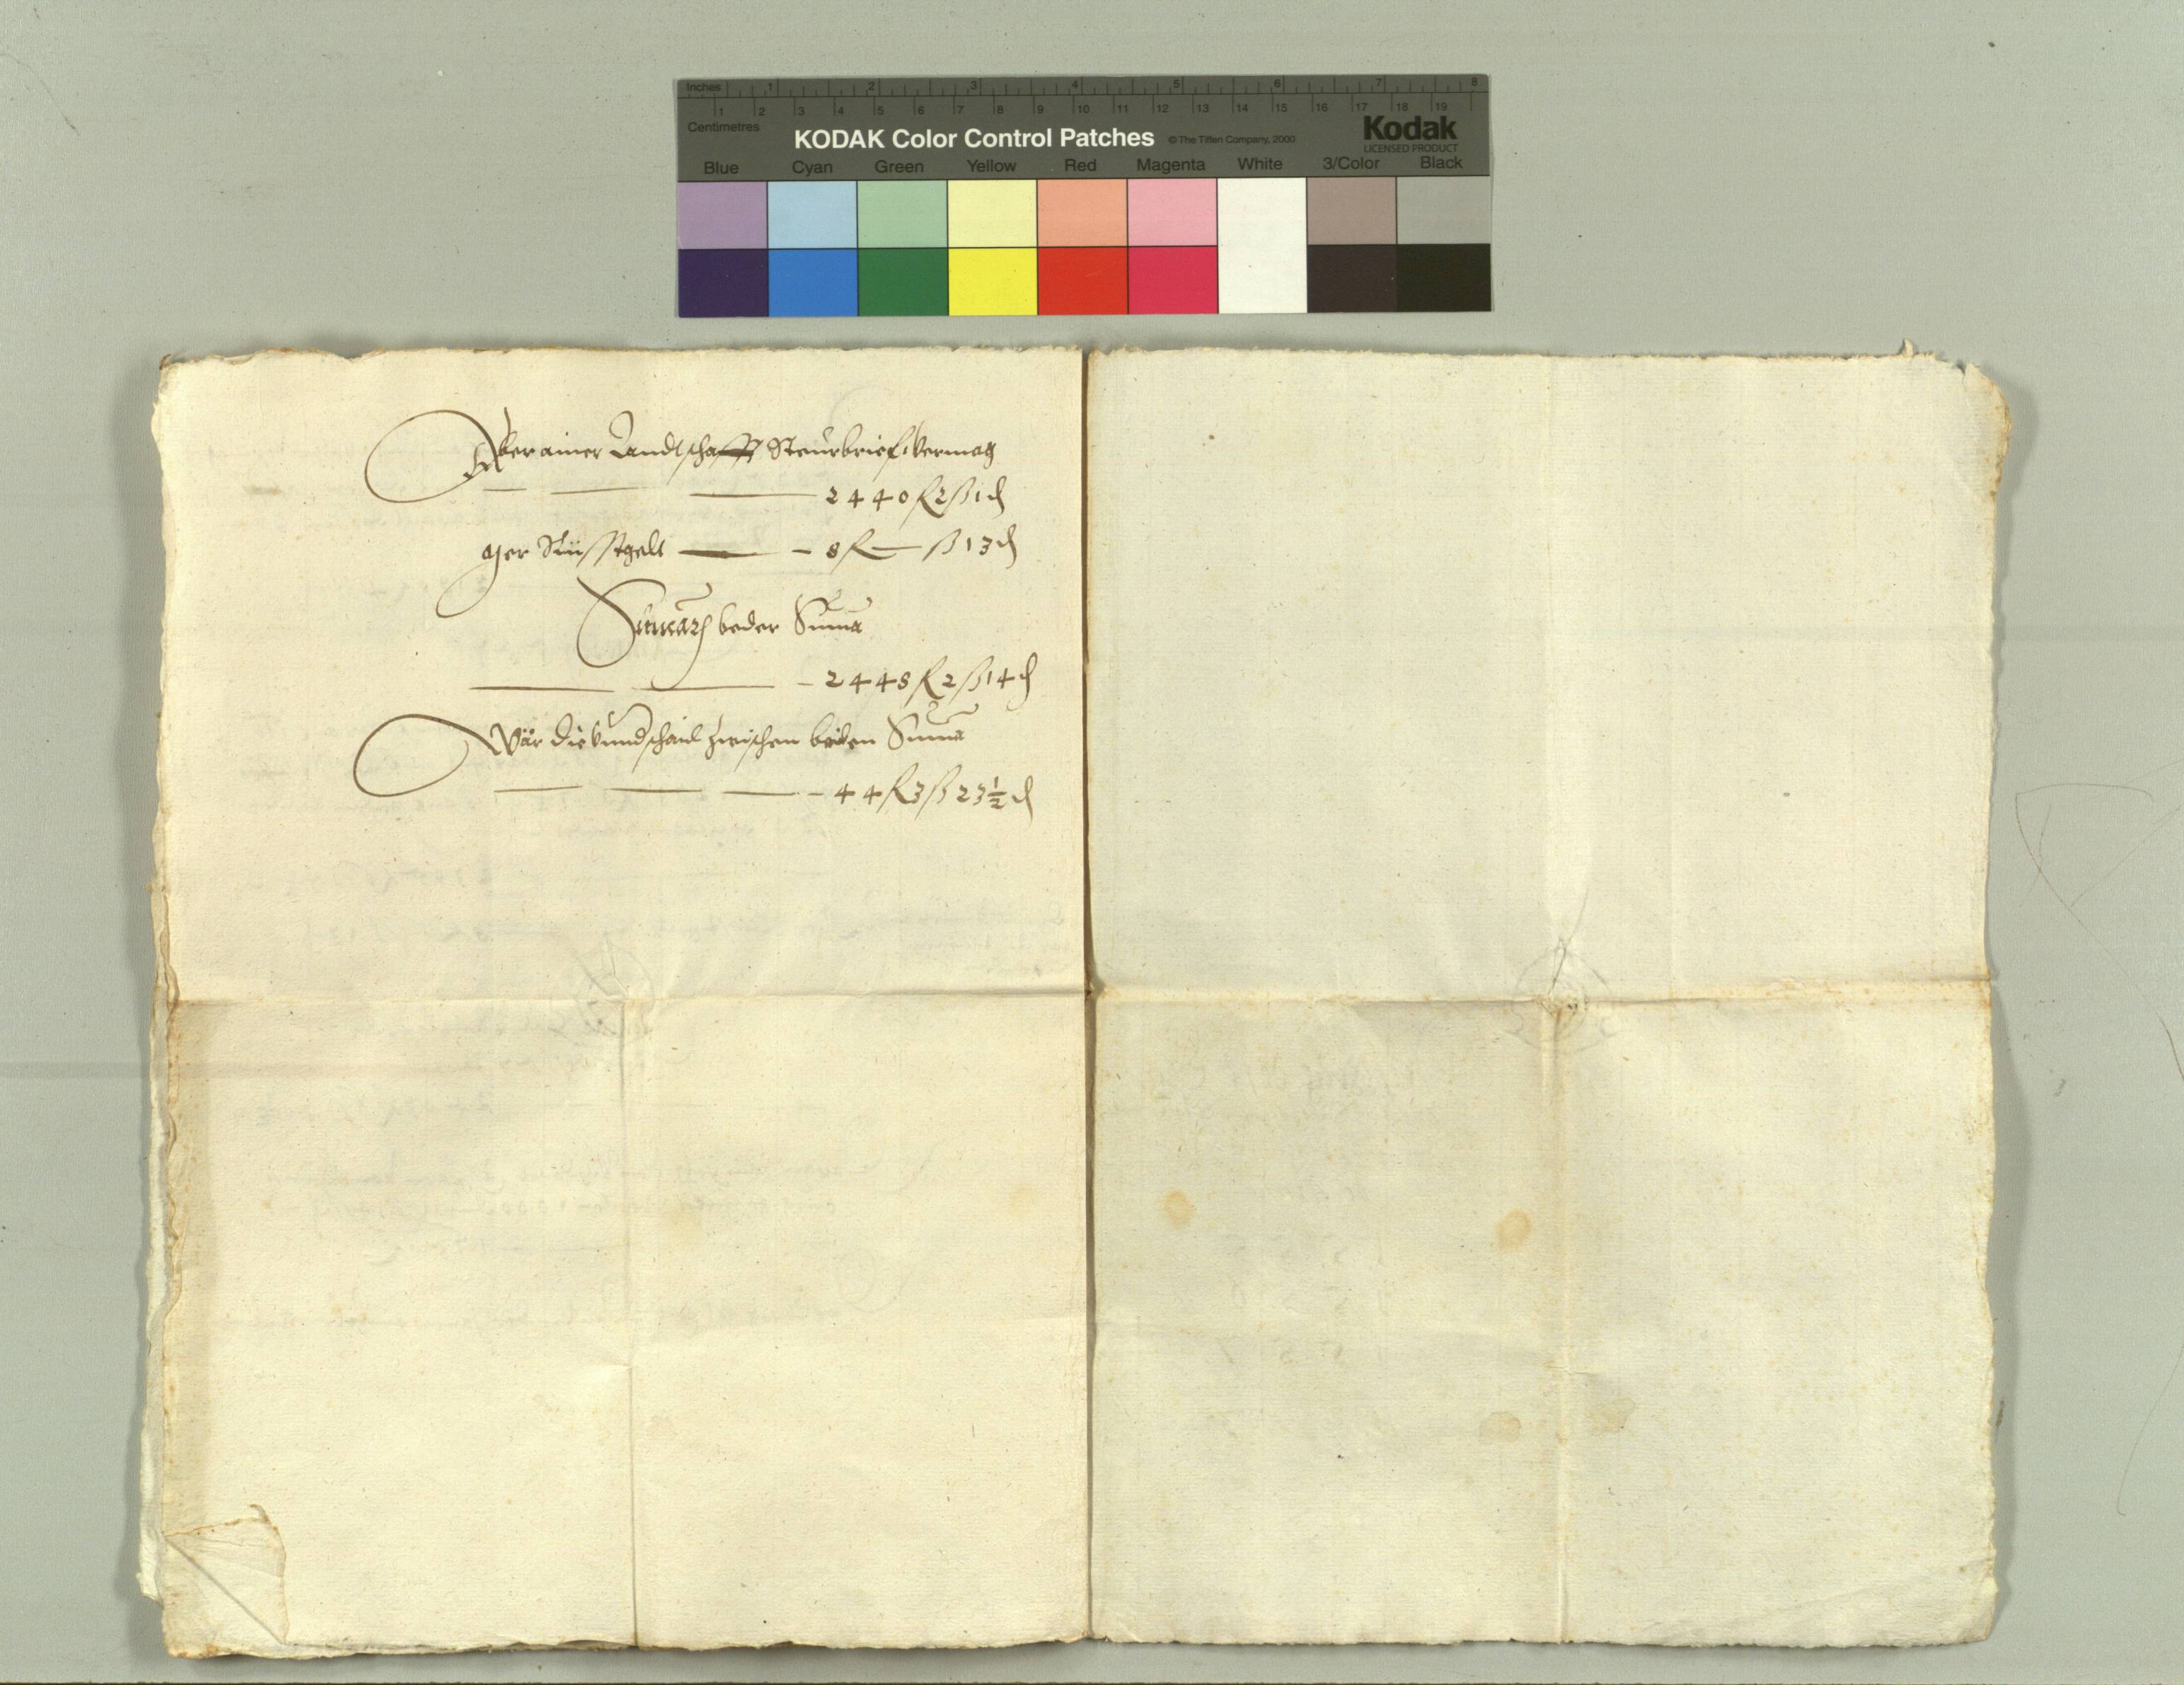 Inches 1 2 3 4 5 6 7 8
1 2 3 4 5 6 7 8 9 10 11 12 13 14 15 16 17 18 19
Centimetres
KODAK Color Control Patches © The Tiffen Company, 2000 Kodak
LICENSED PRODUCT
Blue Cyan Green Yellow Red Magenta White 3/Color Black
Aber ainer Landtschafft Steurbrief vermag
2440 f 2 ß 1 d
Mer Rüsstgelt — 8 f — ß 13 d
beder Suma
2448 f 2 ß 14 d
Wär die unndschaid zwischen beiden Suma
44 f 3 ß 23½ d